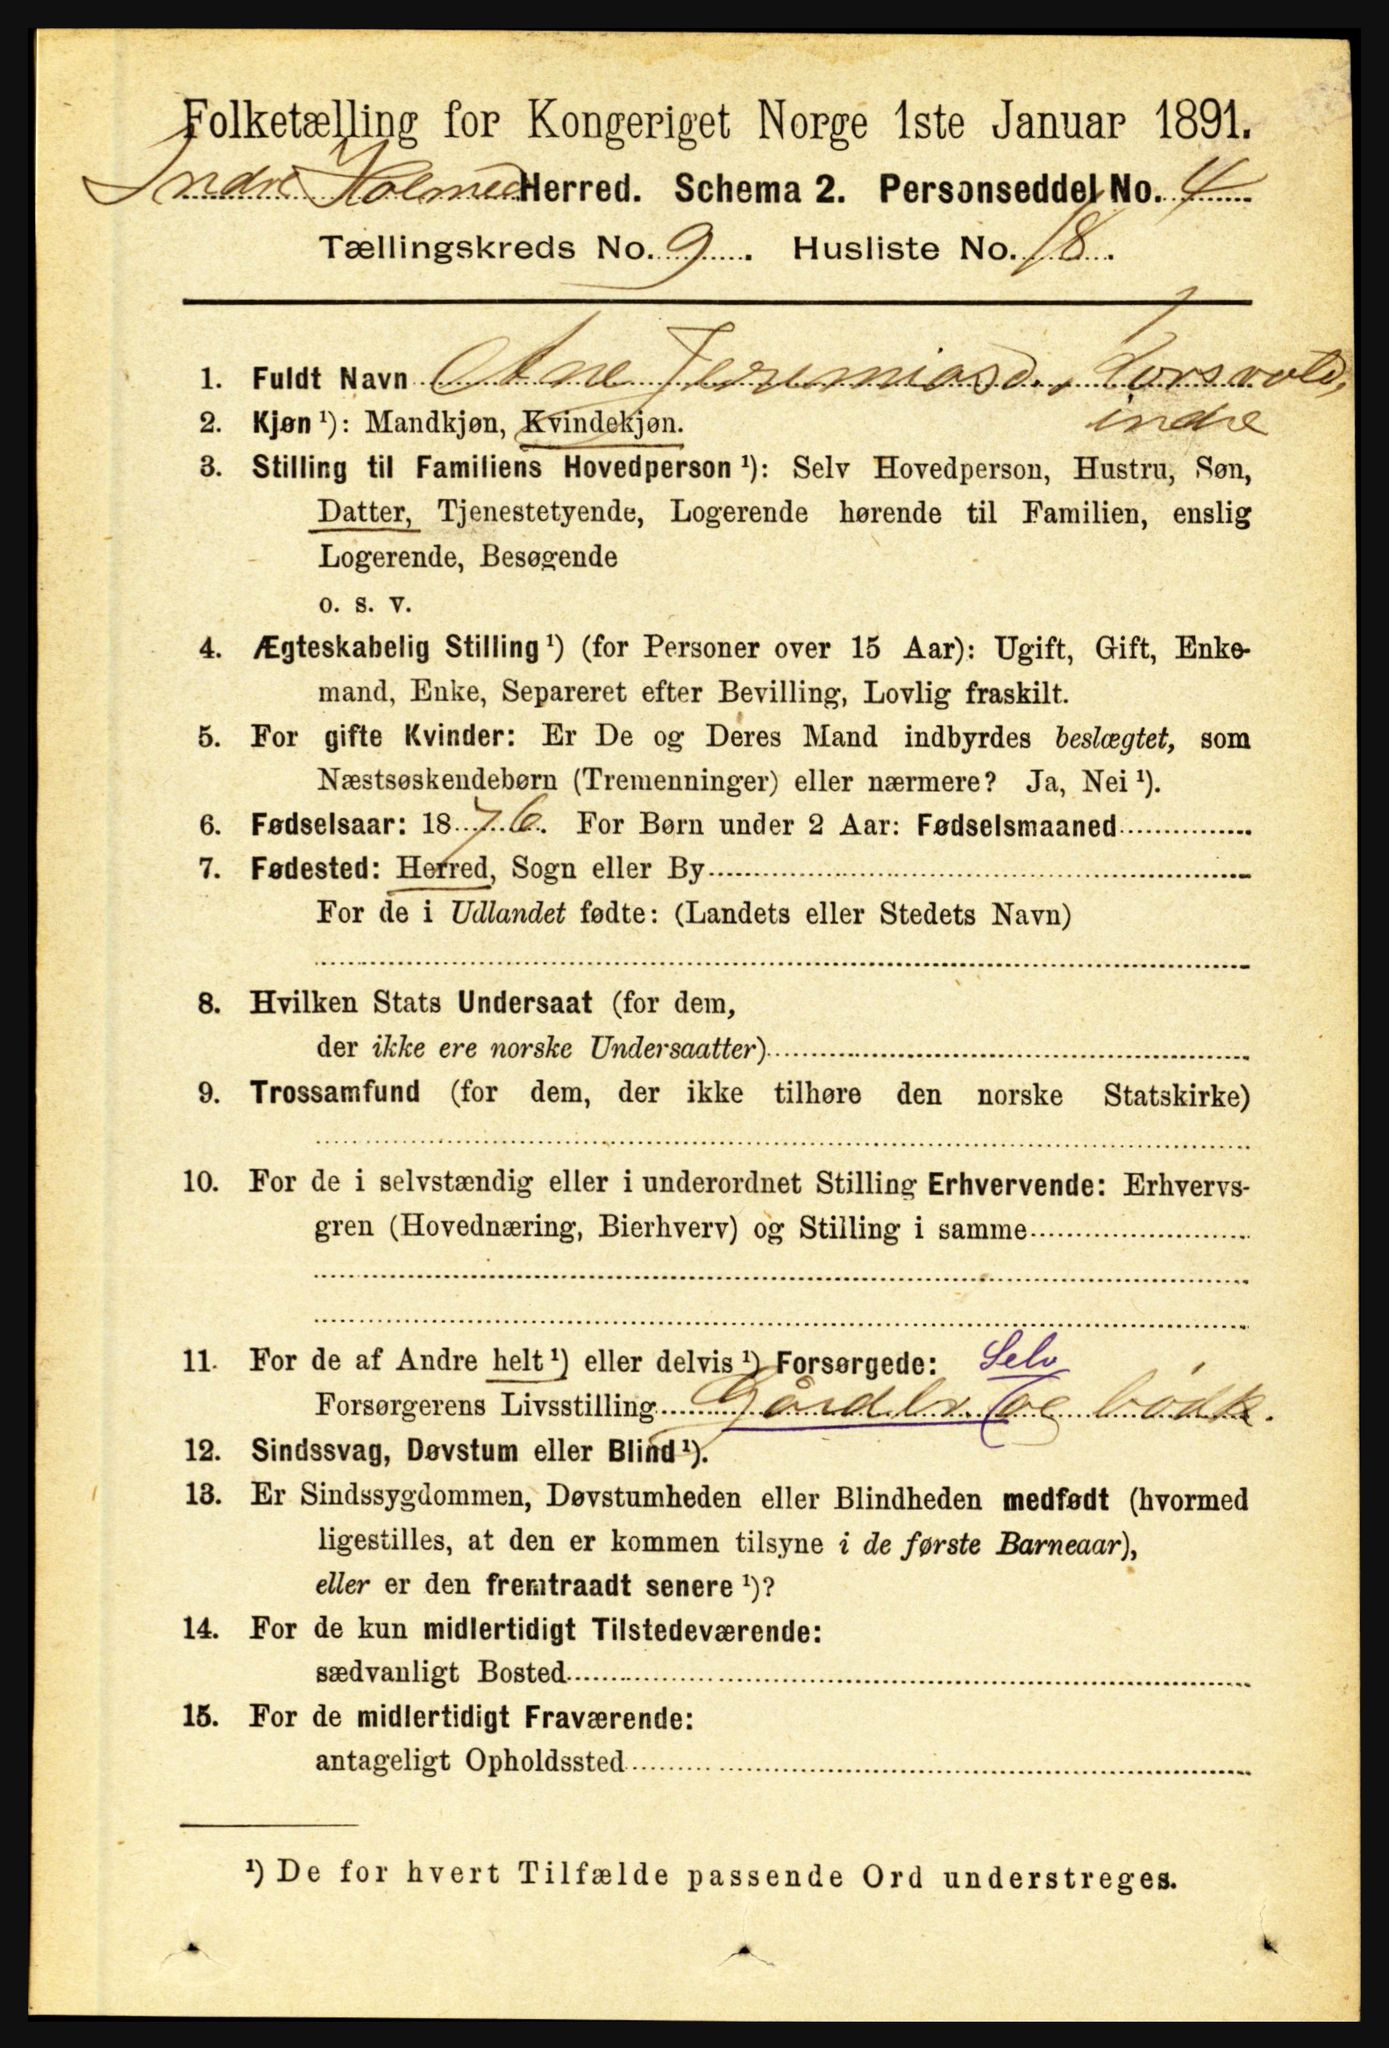 Folketælling for Kongeriget Norge 1ste Januar 1891.
Indre Holmed Herred. Schema 2. Personseddel No. 4
Tællingskreds No. 9. Husliste No. 18.
1. Fuldt Navn Ane Jeremiasd., Torsvold,
indre
2. Kjøn ¹): Mandkjøn, Kvindekjøn.
3. Stilling til Familiens Hovedperson ¹): Selv Hovedperson, Hustru, Søn,
Datter, Tjenestetyende, Logerende hørende til Familien, enslig
Logerende, Besøgende
o. s. v.
4. Ægteskabelig Stilling ¹) (for Personer over 15 Aar): Ugift, Gift, Enke-
mand, Enke, Separeret efter Bevilling, Lovlig fraskilt.
5. For gifte Kvinder: Er De og Deres Mand indbyrdes beslægtet, som
Næstsøskendebørn (Tremenninger) eller nærmere? Ja, Nei ¹).
6. Fødselsaar: 1876. For Børn under 2 Aar: Fødselsmaaned
7. Fødested: Herred, Sogn eller By
For de i Udlandet fødte: (Landets eller Stedets Navn)
8. Hvilken Stats Undersaat (for dem,
der ikke ere norske Undersaatter)
9. Trossamfund (for dem, der ikke tilhøre den norske Statskirke)
10. For de i selvstændig eller i underordnet Stilling Erhvervende: Erhvervs-
gren (Hovednæring, Bierhverv) og Stilling i samme
11. For de af Andre helt ¹) eller delvis ¹) Forsørgede: Selv
Forsørgerens Livsstilling Gårdbr. og bødk.
12. Sindssvag, Døvstum eller Blind ¹).
13. Er Sindssygdommen, Døvstumheden eller Blindheden medfødt (hvormed
ligestilles, at den er kommen tilsyne i de første Barneaar),
eller er den fremtraadt senere ¹)?
14. For de kun midlertidigt Tilstedeværende:
sædvanligt Bosted
15. For de midlertidigt Fraværende:
antageligt Opholdssted
¹) De for hvert Tilfælde passende Ord understreges.